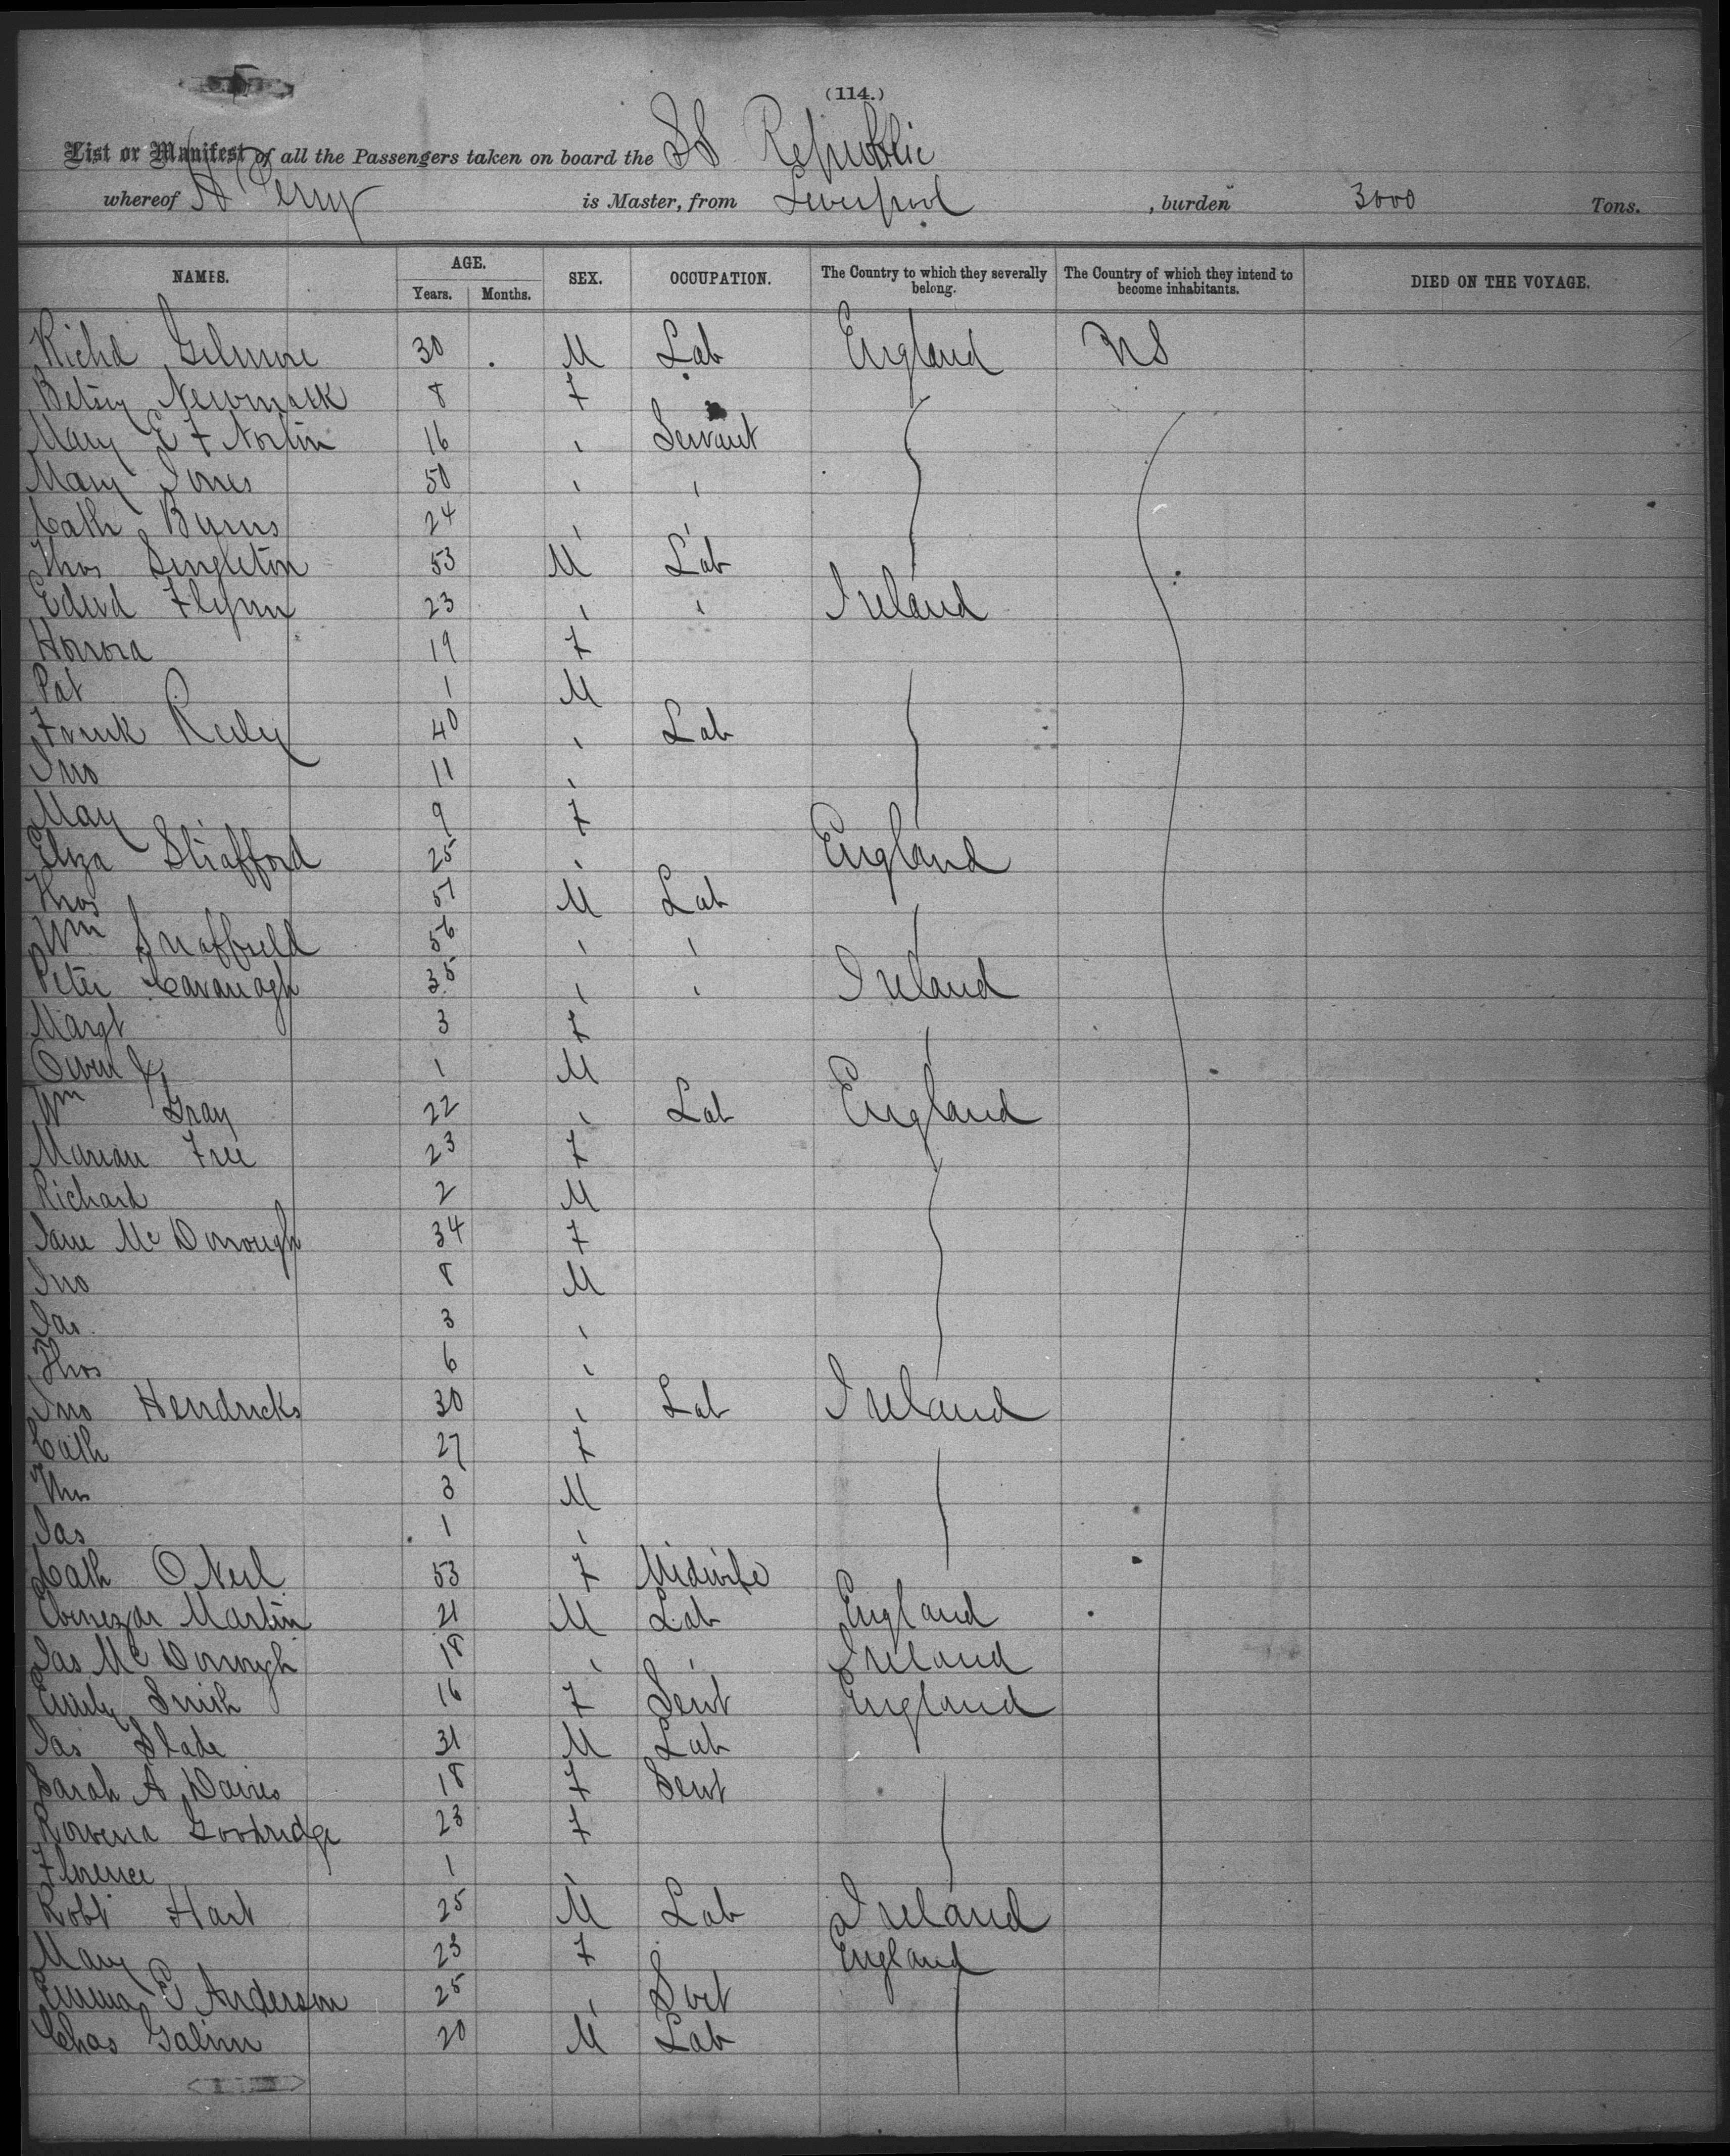 (114.)
List or Manifest of all the Passengers taken on board the SS Republic
whereof H Perry is Master, from Liverpool , burden 3000 Tons.
NAMES. AGE. Years. Months. SEX. OCCUPATION. The Country to which they severally belong. The Country of which they intend to become inhabitants. DIED ON THE VOYAGE.
Richd Gilmore 30 M Lab England US
Betsy Newmark 8 F
Mary E F Norton 16 " Servant
Mary Jones 50 " "
Cath Byrns 24 " "
Thos Singleton 53 M Lab
Edwd Flynn 23 " " Ireland
Honora 19 F
Pat 1 M
Frank Reiley 40 " Lab
Jno 11 "
Mary 9 F
Eliza Strafford 25 " England
Thos 57 M Lab
Wm 56 " "
Peter Cavanagh 35 " " Ireland
Margt 3 F
Owen 1 M
Wm Gray 22 " Lab England
Marian Free 23 F
Richard 2 M
Jane McDonough 34 F
Jno 8 M
Jas 3 "
Thos 6 "
Jno Hendricks 30 " Lab Ireland
Cath 27 F
Thos 3 M
Jas 1 "
Cath O Neil 53 F Midwife
Ebenezar Martin 21 M Lab England
Jas McDonough 18 " " Ireland
Emily Smith 16 F Servt England
Jas Slade 31 M Lab
Sarah A Davies 18 F Servt
Rowena Goodridge 23 F
Florence 1 "
Robt Hart 25 M Lab Ireland
Mary 23 F England
Emma E Anderson 25 " Svt
Chas 20 M Lab